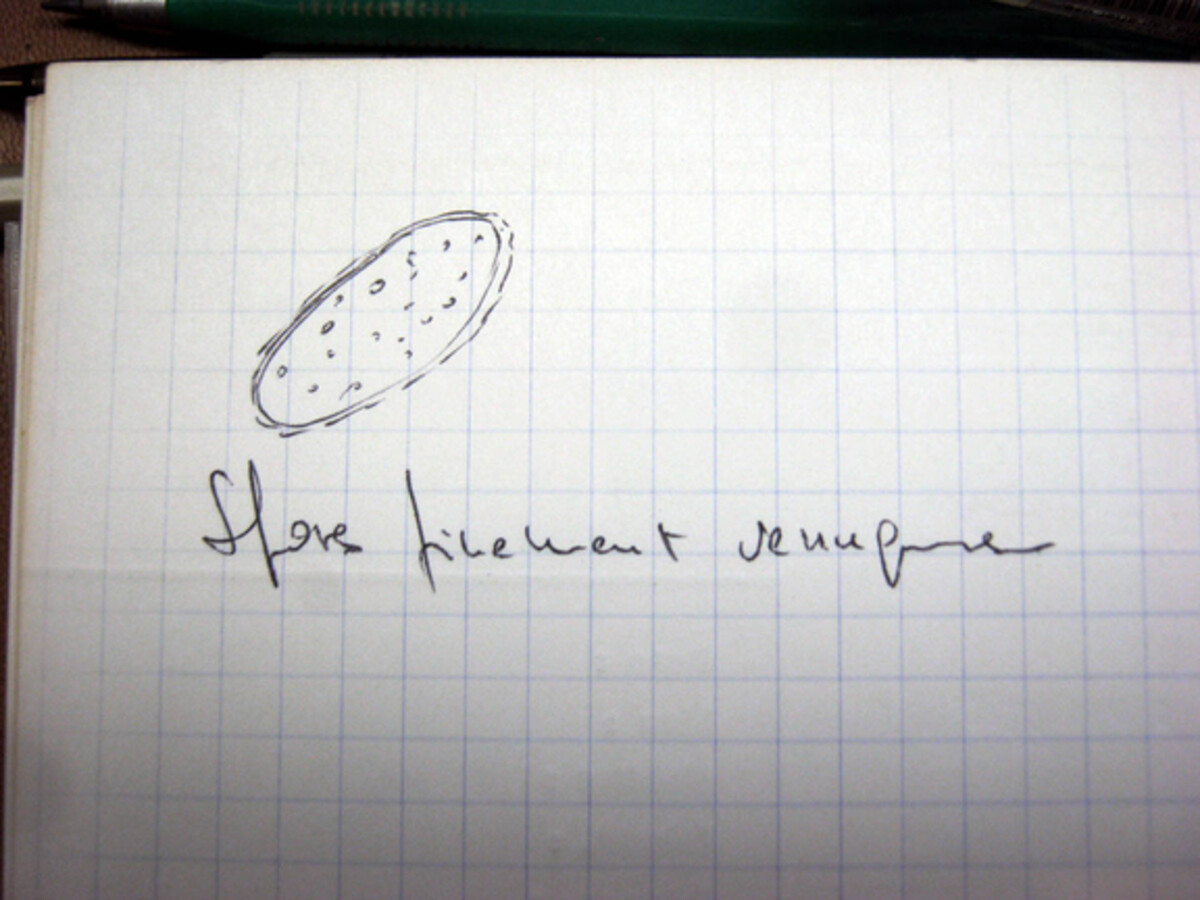 Spores finement verruqueuses